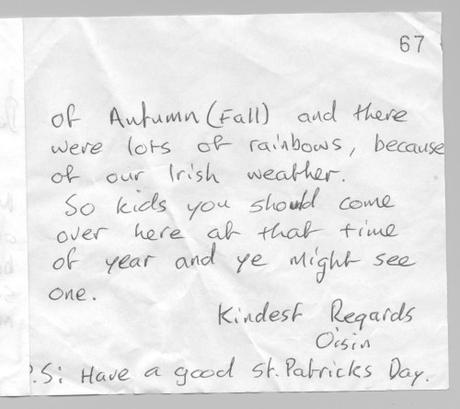 67
of Autumn (Fall) and there
were lots of rainbows, because
of our Irish weather.
So kids you should come
over here at that time
of year and ye might see
one.
Kindest Regards
Oisin
P.S: Have a good St. Patricks Day.